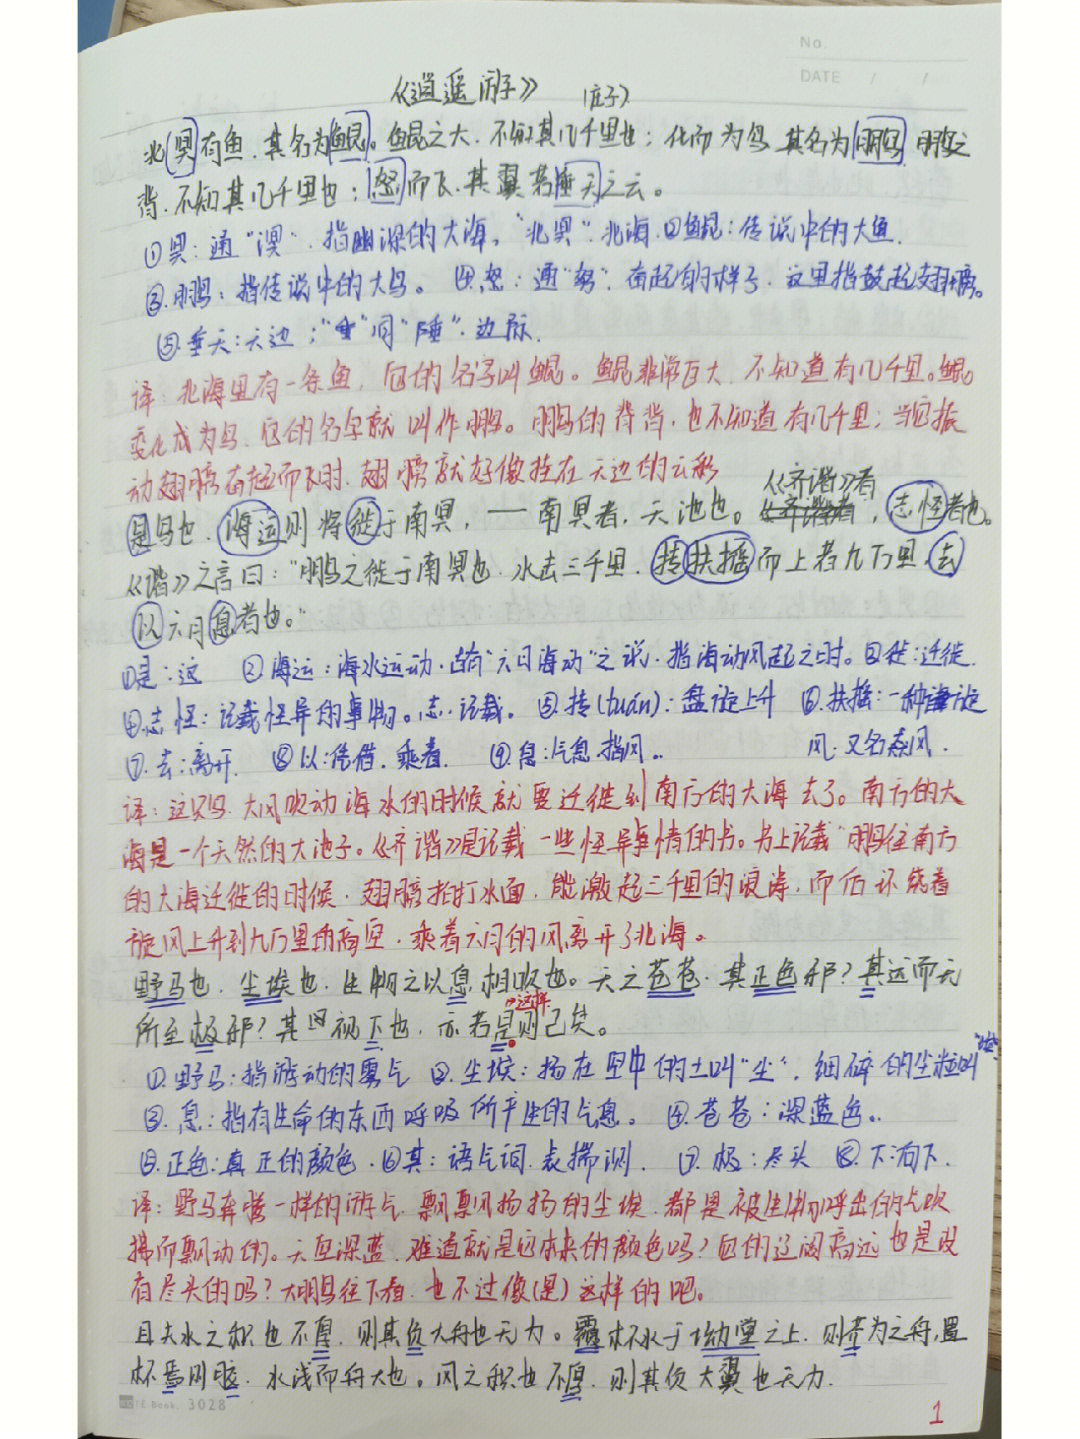 No.
DATE / /
《逍遥游》 (庄子)
北冥有鱼，其名为鲲。鲲之大，不知其几千里也；化而为鸟，其名为鹏，鹏之
背，不知其几千里也；怒而飞，其翼若垂天之云。
①冥：通“溟”，指幽深的大海，“北冥”，北海。②鲲：传说中的大鱼。
③鹏：指传说中的大鸟。 ④怒：通“努”，奋起的样子，这里指鼓起翅膀。
⑤垂天：天边；“垂”同“陲”，边际。
译：北海里有一条鱼，它的名字叫鲲。鲲非常巨大，不知道有几千里。鲲
变化成为鸟，它的名字就叫作鹏。鹏的脊背，也不知道有几千里；当它振
动翅膀奋起而飞时，翅膀就好像挂在天边的云彩
是鸟也，海运则将徙于南冥，——南冥者，天池也。《齐谐》者，志怪者也。
《谐》之言曰：“鹏之徙于南冥也，水击三千里，抟扶摇而上者九万里，去
以六月息者也。”
①是：这 ②海运：海水运动，古有“六月海动”之说，指海动风起之时。③徙：迁徙。
④志怪：记载怪异的事物。志：记载。 ⑤抟(tuán)：盘旋上升 ⑥扶摇：一种旋
风，又名飙风。
⑦去：离开。 ⑧以：凭借，乘着。 ⑨息：气息，指风。
译：这只鸟，大风吹动海水的时候就要迁徙到南方的大海去了。南方的大
海是一个天然的大池子。《齐谐》是记载一些怪异事情的书。书上记载“鹏往南方
的大海迁徙的时候，翅膀拍打水面，能激起三千里的浪涛，而后环绕着
旋风上升到九万里的高空，乘着六月的风离开了北海。
野马也，尘埃也，生物之以息相吹也。天之苍苍，其正色邪？其远而无
“这样
所至极邪？其视下也，亦若是则已矣。
①野马：指游动的雾气 ②尘埃：扬在空中的土叫“尘”，细碎的尘粒叫“埃”
③息：指有生命的东西呼吸所产生的气息。 ④苍苍：深蓝色。
⑤正色：真正的颜色。⑥其：语气词，表揣测。 ⑦极：尽头 ⑧下：向下。
译：野马奔腾一样的游气，飘飘扬扬的尘埃，都是被生物呼出的气吹
拂而飘动的。天空深蓝，难道就是它本来的颜色吗？它的辽阔高远也是没
有尽头的吗？大鹏往下看，也不过像(是)这样的吧。
且夫水之积也不厚，则其负大舟也无力。覆杯水于坳堂之上，则芥为之舟，置
杯焉则胶，水浅而舟大也。风之积也不厚，则其负大翼也无力。
NOTE Book. 3028
1